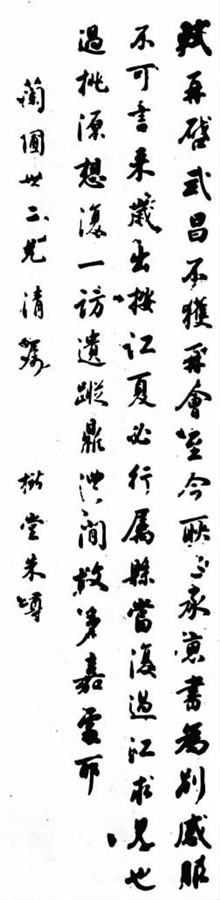 軾再啓武昌不獲再會至今耿耿承惠書為別感服
不可書來歲出按江夏必行屬縣當復過江求見也
過桃源想復一訪遺蹤鼎澧間故多嘉處耶
蘭圃世二兄清囑
堂朱嶟